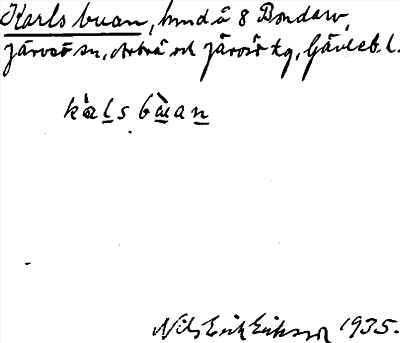 Karls buan, hmd å 8 Bondarv,
Järvsö sn, Arbrå och Järvsö tg, Gävleb. l.
kàlsbùan
Nils Erik Eriksson 1935.